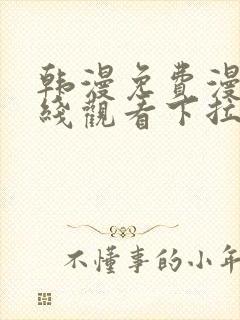 韩漫免費漫
綫觀看下拉
不懂事的小年